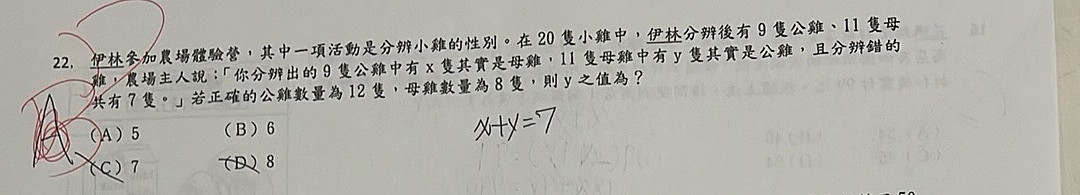 22. 伊林參加農場體驗營，其中一項活動是分辨小雞的性別。在 20 隻小雞中，伊林分辨後有 9 隻公雞、11 隻母
雞，農場主人說：「你分辨出的 9 隻公雞中有 x 隻其實是母雞，11 隻母雞中有 y 隻其實是公雞，且分辨錯的
共有 7 隻。」若正確的公雞數量為 12 隻，母雞數量為 8 隻，則 y 之值為？
A (A) 5 (B) 6 x+y=7
(C) 7 (D) 8